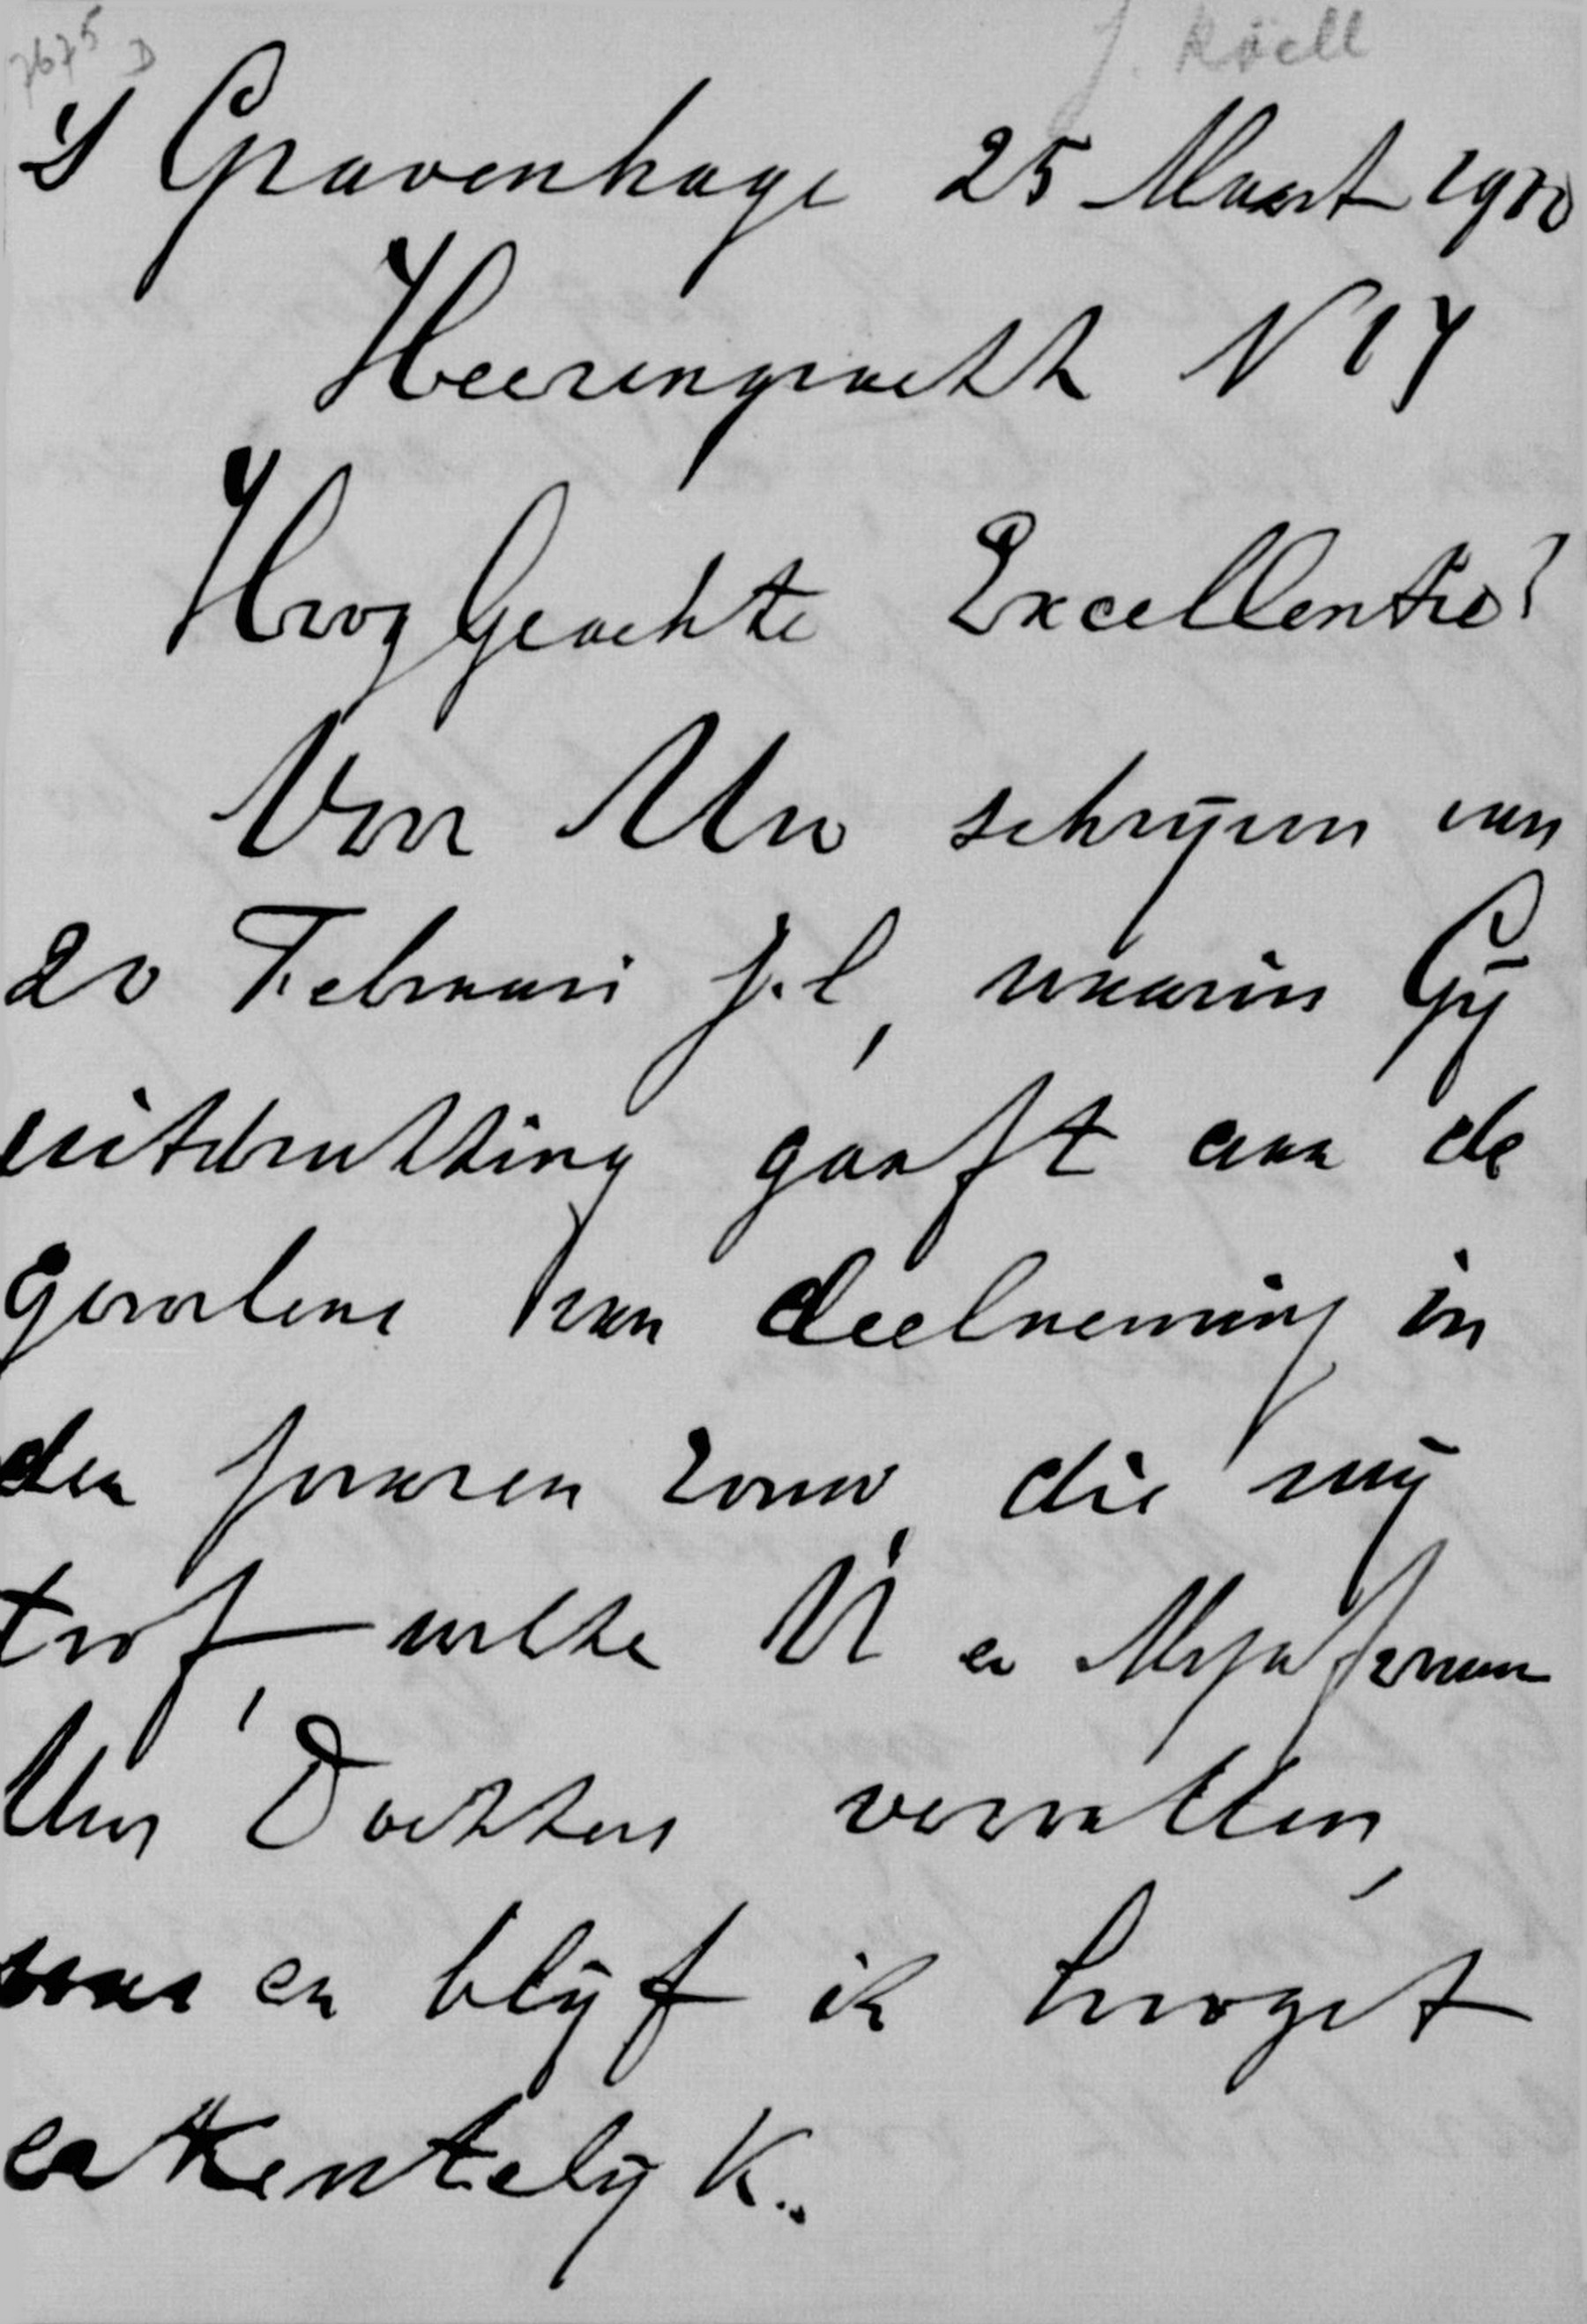 7675 D J. Röell
'S Gravenhage 25 Maart 1910
Heerengracht N 17
HoogGeachte Excellentie!
Voor Uw schrijven van
20 Februari j.l, waarin Gij
uitdrukking gaaft aan de
gevoelens van deelneming in
den zwaren rouw, die mij
trof, welke U en Mejufvrouw
Uw Dochter vervullen,
was en blijf ik hoogst
erkentelijk.